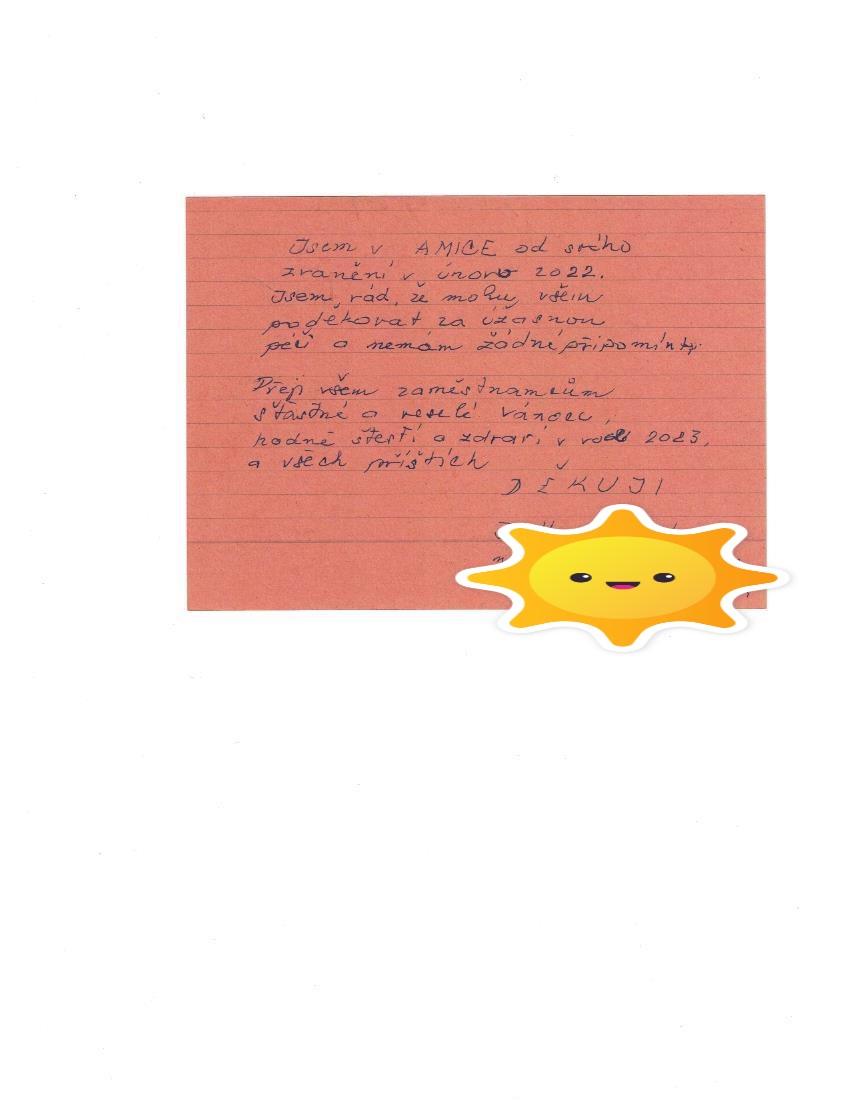 Jsem v AMICE od svého
zranění v únoru 2022.
Jsem rád, že mohu všem
poděkovat za úžasnou
péči a nemám žádné připomínky.
Přeji všem zaměstnancům
šťastné a veselé Vánoce,
hodně štestí a zdraví v roce 2023,
a všech příštích
DĚKUJI